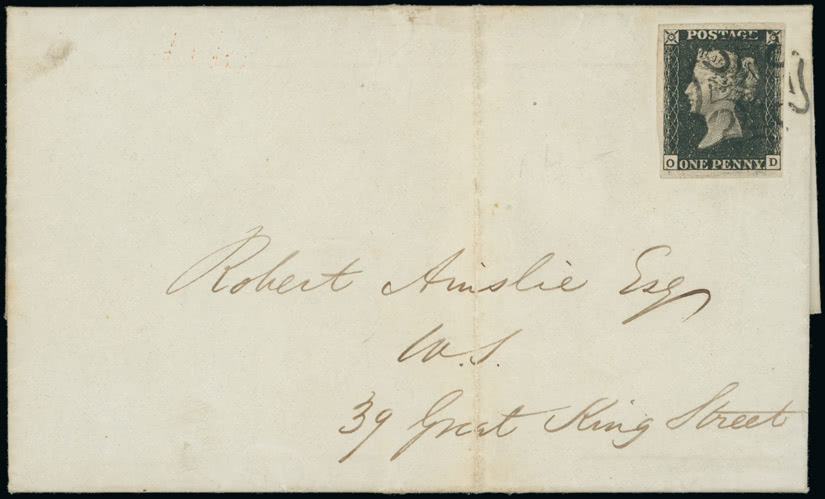 POSTAGE
O ONE PENNY. D
Robert Ainslie Esq
W.S.
39 Great King Street